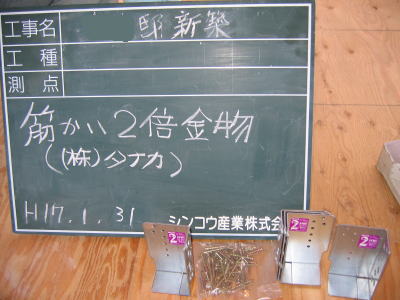 工事名 邸新築
工種
測点
筋かい2倍金物
((株)タナカ)
H17.1.31
シンコウ産業株式会
2
2
2